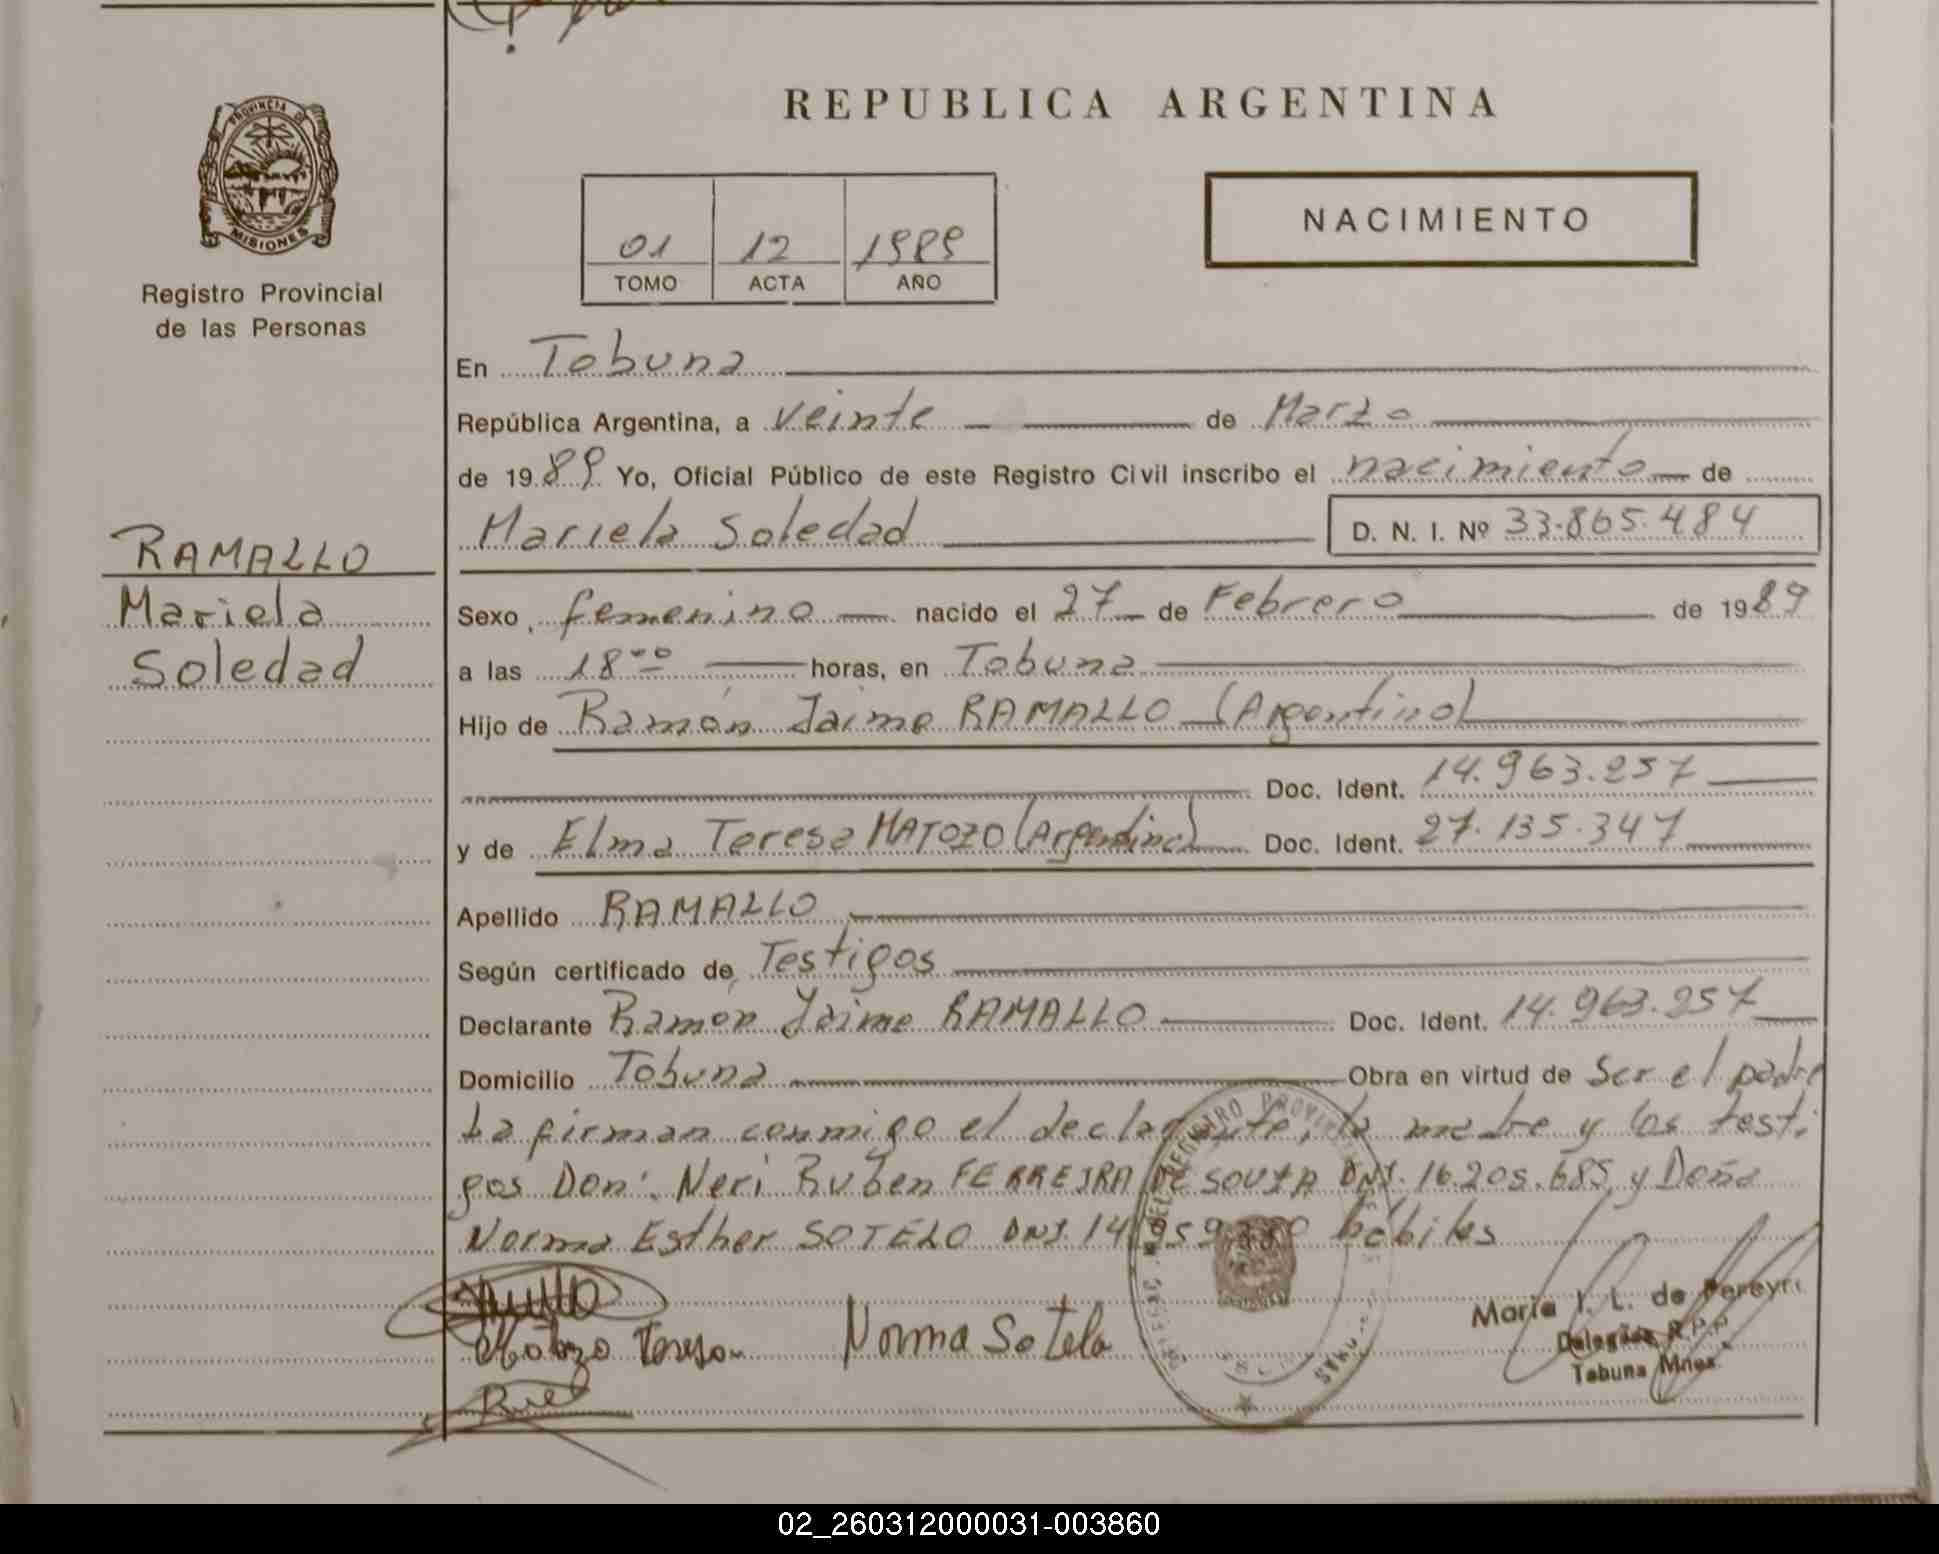 REPUBLICA ARGENTINA
PROVINCIA DE
MISIONES
Registro Provincial
de las Personas
01 12 1989
TOMO ACTA AÑO
NACIMIENTO
En Tobuna
República Argentina, a veinte de Marzo
de 1989 Yo, Oficial Público de este Registro Civil inscribo el nacimiento de
Mariela Soledad D. N. I. Nº 33.865.484
RAMALLO
Mariela
Soledad
Sexo femenino nacido el 27 de Febrero de 1989
a las 18 00 horas, en Tobuna
Hijo de Ramón Jaime RAMALLO (Argentino)
Doc. Ident. 14.963.257
y de Elma Teresa MATOZO (Argentina) Doc. Ident. 27.135.347
Apellido RAMALLO
Según certificado de Testigos
Declarante Ramón Jaime RAMALLO Doc. Ident. 14.963.257
Domicilio Tobuna Obra en virtud de Ser el padre
La firman conmigo el declarante, la madre y los testi
gos Don: Neri Ruben FERREIRA DE SOUZA DNI. 16.205.685 y Doña
Norma Esther SOTELO DNI. 14.959. hábiles
Matozo Teresa Norma Sotelo
María I. L. de Pereyra
Delegada R.P.P.
Tobuna Mnes.
REGISTRO PROVINCIAL
02_260312000031-003860